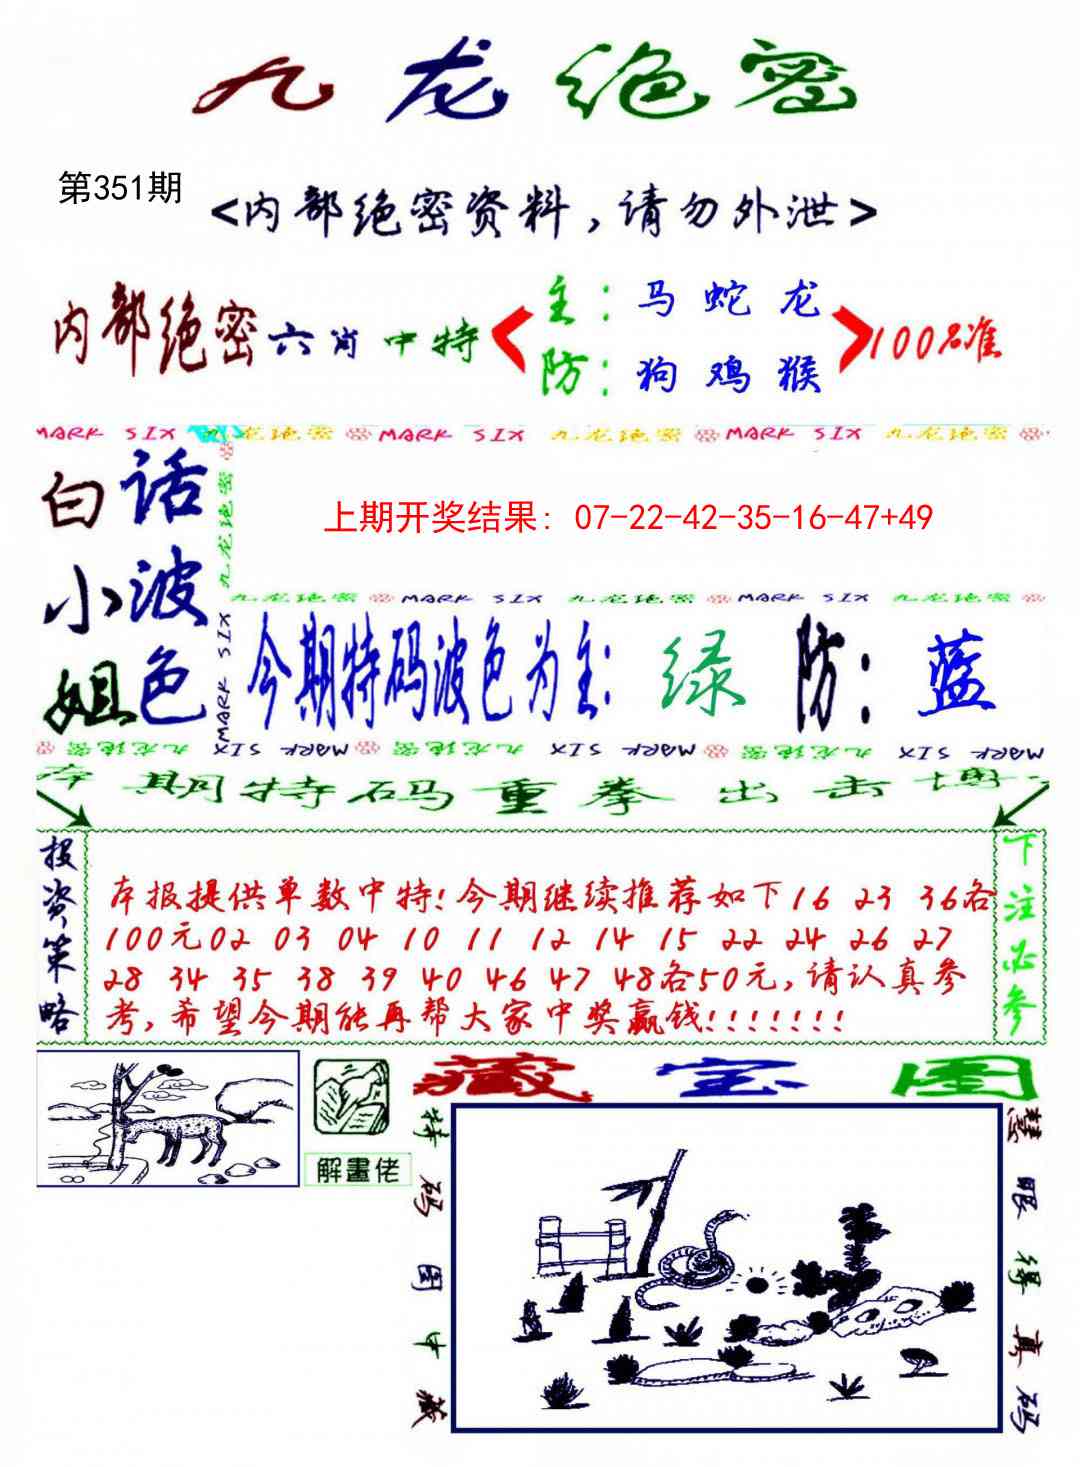 九龙绝密
第351期
<内部绝密资料,请勿外泄>
内部绝密六肖中特
主:马 蛇 龙
防:狗 鸡 猴
100%准
MARK SIX 九龙绝密 MARK SIX 九龙绝密 MARK SIX 九龙绝密
白话
小波
姐色
九龙绝密
MARK SIX
上期开奖结果: 07-22-42-35-16-47+49
九龙绝密 MARK SIX 九龙绝密 MARK SIX 九龙绝密
今期特码波色为主:绿 防:蓝
九龙绝密 MARK SIX 九龙绝密 MARK SIX 九龙绝密 MARK SIX
本期特码重拳出击博
投资策略
本报提供单数中特!今期继续推荐如下16 23 36各
100元02 03 04 10 11 12 14 15 22 24 26 27
28 34 35 38 39 40 46 47 48各50元,请认真参
考,希望今期能再帮大家中奖赢钱!!!!!!!
下注必参
解畫佬
藏宝图
特码图中藏
慧眼得真码